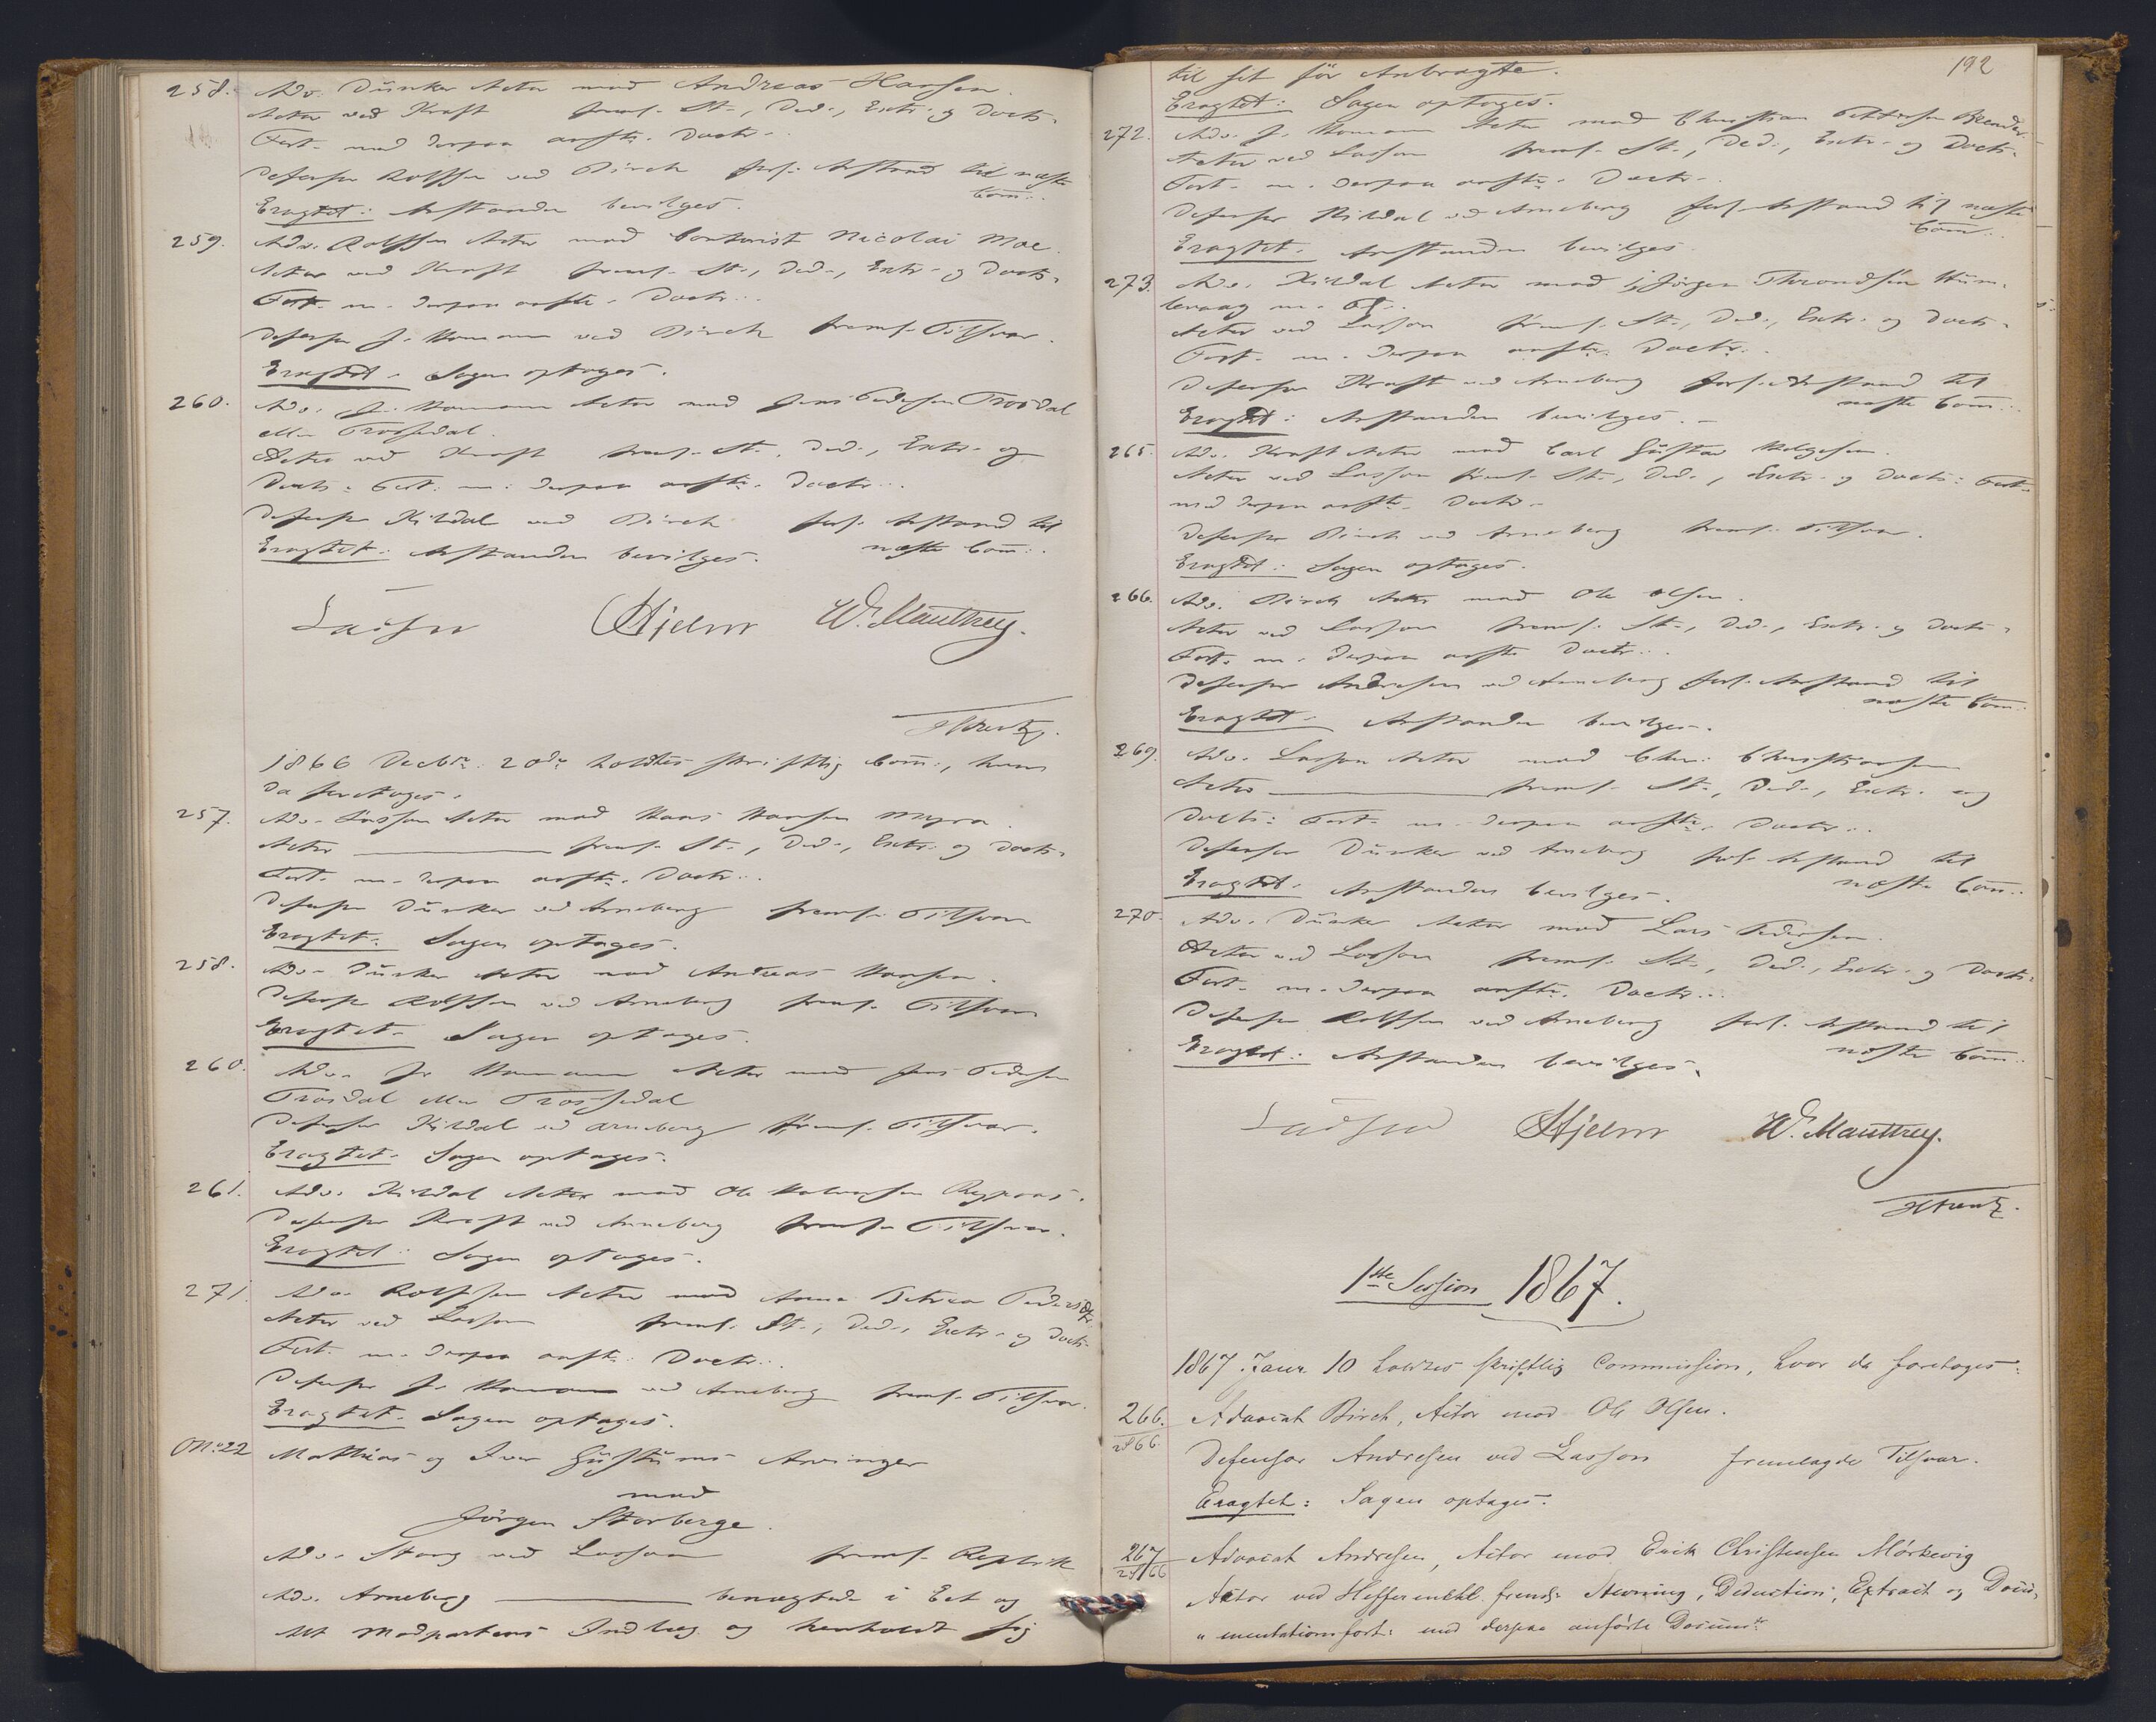 258. Adv. Dünker Actor mod Andreas Hansen.
Actor ved Kraft freml. St., Ded., Extr. og Docts.
Fort. med derpaa anførte Doctr.
Defensor Rolffsen ved Birch forl. Anstand til næste
Com:.
Eragtet: Anstanden bevilges.
259. Adv. Rolffsen Actor mod Contorist Nicolai Moe.
Actor ved Kraft freml. St., Ded., Extr. og Docts.
Fort. m. derpaa anførte Doctr.
Defensor J. Homann ved Birch freml. Tilsvar.
Eragtet: Sagen optages.
260. Adv. J. Homann Actor mod Jens Pedersen Trosdal
eller Trossedal.
Actor ved Kraft freml. St., Ded., Extr. og
Docts. Fort. m. derpaa anførte Doctr.
Defensor Kildal ved Birch forl. Anstand til
næste Com:.
Eragtet: Anstanden bevilges.
Lasson Hjelm W. Manthey.
1866 Decbr. 20de holdtes skriftlig Com:, hvor
da foretoges:
257. Adv. Lasson Actor mod Hans Hansen Myra.
Actor ——— freml. St., Ded., Extr. og Docts.
Fort. m. derpaa anførte Doctr.
Defensor Dünker ved Arneberg freml. Tilsvar
Eragtet: Sagen optages.
258. Adv. Dünker Actor mod Andreas Hansen.
Defensor Rolffsen ved Arneberg freml. Tilsvar
Eragtet: Sagen optages.
260. Adv. J. Homann Actor mod Jens Pedersen
Trosdal eller Trossedal
Defensor Kildal ved Arneberg freml. Tilsvar.
Eragtet: Sagen optages.
261. Adv. Kildal Actor mod Ole Halvorsen
Defensor Kraft ved Arneberg freml. Tilsvar.
Eragtet: Sagen optages.
271. Adv. Rolffsen Actor mod Anne Petrea Pedersdtr.
Actor ved Lasson freml. St., Ded., Extr. og Docts.
Fort. m. derpaa anførte Doctr.
Defensor J. Homann ved Arneberg freml. Tilsvar.
Eragtet: Sagen optages.
O No. 22 Mathias og Iver Arvinger
mod
Jörgen Storberge.
Adv. Stang ved Lasson freml. Replik
Adv. Arneberg ——— benægtede i Eet og
Alt Modpartens Indlæg og henholdt sig
192
til sit för Anbragte.
Eragtet: Sagen optages.
272. Adv. J. Homann Actor mod Christian Pettersen
Actor ved Lasson freml. St., Ded., Extr. og Docts.
Fort. m. derpaa anførte Doctr.
Defensor Kildal ved Arneberg forl. Anstand til næste
Com:.
Eragtet: Anstanden bevilges.
273. Adv. Kildal Actor mod 1, Jörgen Throndsen Hum-
levaag m. Fl.
Actor ved Lasson freml. St., Ded., Extr. og Docts.
Fort. m. derpaa anførte Doctr.
Defensor Kraft ved Arneberg forl. Anstand til
næste Com:.
Eragtet: Anstanden bevilges. –
265. Adv. Kraft Actor mod Carl Gustav Helgesen.
Actor ved Lasson freml. St., Ded., Extr. og Docts. Fort.
med derpaa anførte Doctr.
Defensor Birch ved Arneberg freml. Tilsvar.
Eragtet: Sagen optages.
266. Adv. Birch Actor mod Ole Olsen.
Actor ved Lasson freml. St., Ded., Extr. og Docts.
Fort. m. derpaa anførte Doctr.
Defensor Andresen ved Arneberg forl. Anstand til
næste Com:.
Eragtet: Anstanden bevilges.
269. Adv. Lasson Actor mod Chr. Christiansen
Actor ——— freml. St., Ded., Extr. og
Docts. Fort. m. derpaa anførte Doctr.
Defensor Dünker ved Arneberg forl. Anstand til
næste Com:.
Eragtet: Anstanden bevilges.
270. Adv. Dünker Actor mod Lars Pedersen.
Actor ved Lasson freml. St., Ded., Extr. og Docts.
Fort. m. derpaa anførte Doctr.
Defensor Rolffsen ved Arneberg forl. Anstand til
næste Com:.
Eragtet: Anstanden bevilges.
Lasson Hjelm W. Manthey.
1ste Session 1867.
1867 Janr. 10 holdtes skriftlig Commission, hvor da foretoges:
266./1866. Advocat Birch, Actor mod Ole Olsen.
Defensor Andresen ved Lasson fremlagde Tilsvar.
Eragtet: Sagen optages.
267/1866 Advocat Andresen, Actor mod Erik Christensen Mörkevig
Actor ved Heffermehl freml: Stevning, Deduction, Extract og Docu-
„mentationsfort: med derpaa anførte Docum: